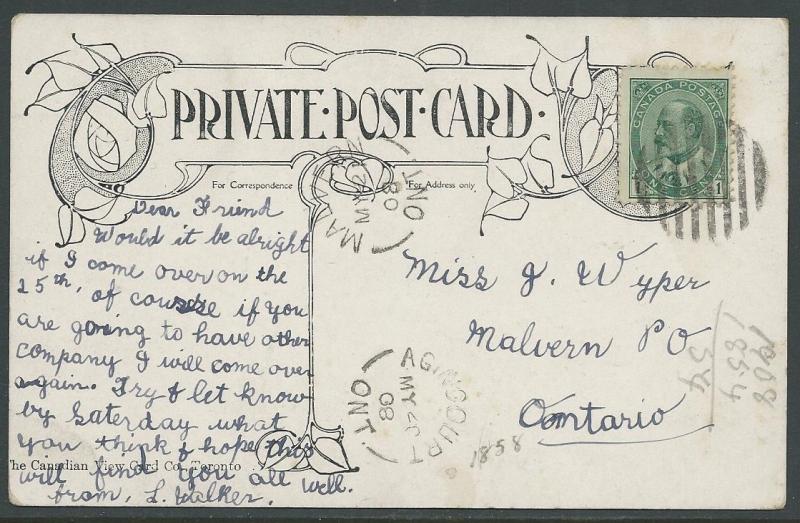 PRIVATE·POST·CARD·
For Correspondence
For Address only
CANADA POSTAGE
1 ONE CENT 1
MALVERN
MY 22
08
ONT
Dear Friend
Would it be alright
if I come over on the
25th, of course if you
are going to have other
company I will come over
again. Try & let know
by Saterday what
you think & hope this
The Canadian View Card Co., Toronto
will find you all well.
from, L. Walker.
Miss J. Wyper
Malvern PO
Ontario
AGINCOURT
MY
08
ONT
1858
1908
1854
54